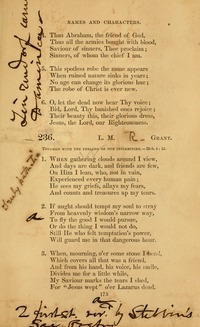 NAMES AND CHARACTERS.
Thou Abraham, the friend of God,
Thus all the armies bought with blood,
Saviour of sinners, Thee proclaim;
Sinners, of whom the chief I am.
5 This spotless robe the same appears
When ruined nature sinks in years;
No age can change its glorious hue;
The robe of Christ is ever new.
6 O, let the dead now hear Thy voice;
Bid, Lord, Thy banished ones rejoice;
Their beauty this, their glorious dress,
Jesus, the Lord, our Righteousness.
236. L. M. R GRANT.
TOUCHED WITH THE FEELING OF OUR INFIRMITIES.
1 WHEN gathering clouds around I view,
And days are dark, and friends are few,
On Him I lean, who, not in vain,
Experienced every human pain;
He sees my griefs, allays my fears,
And counts and treasures up my tears.
2 If aught should tempt my soul to stray
From heavenly wisdom's narrow way,
To fly the good I would pursue,
Or do the thing I would not do,
Still He who felt temptation's power,
Will guard me in that dangerous hour.
3 When, mourning, o'er some stone I bend,
Which covers all that was a friend,
And from his hand, his voice, his smile,
Divides me for a little while,
My Saviour marks the tears I shed,
For "Jesus wept" o'er Lazarus dead.
173
2 first st. by